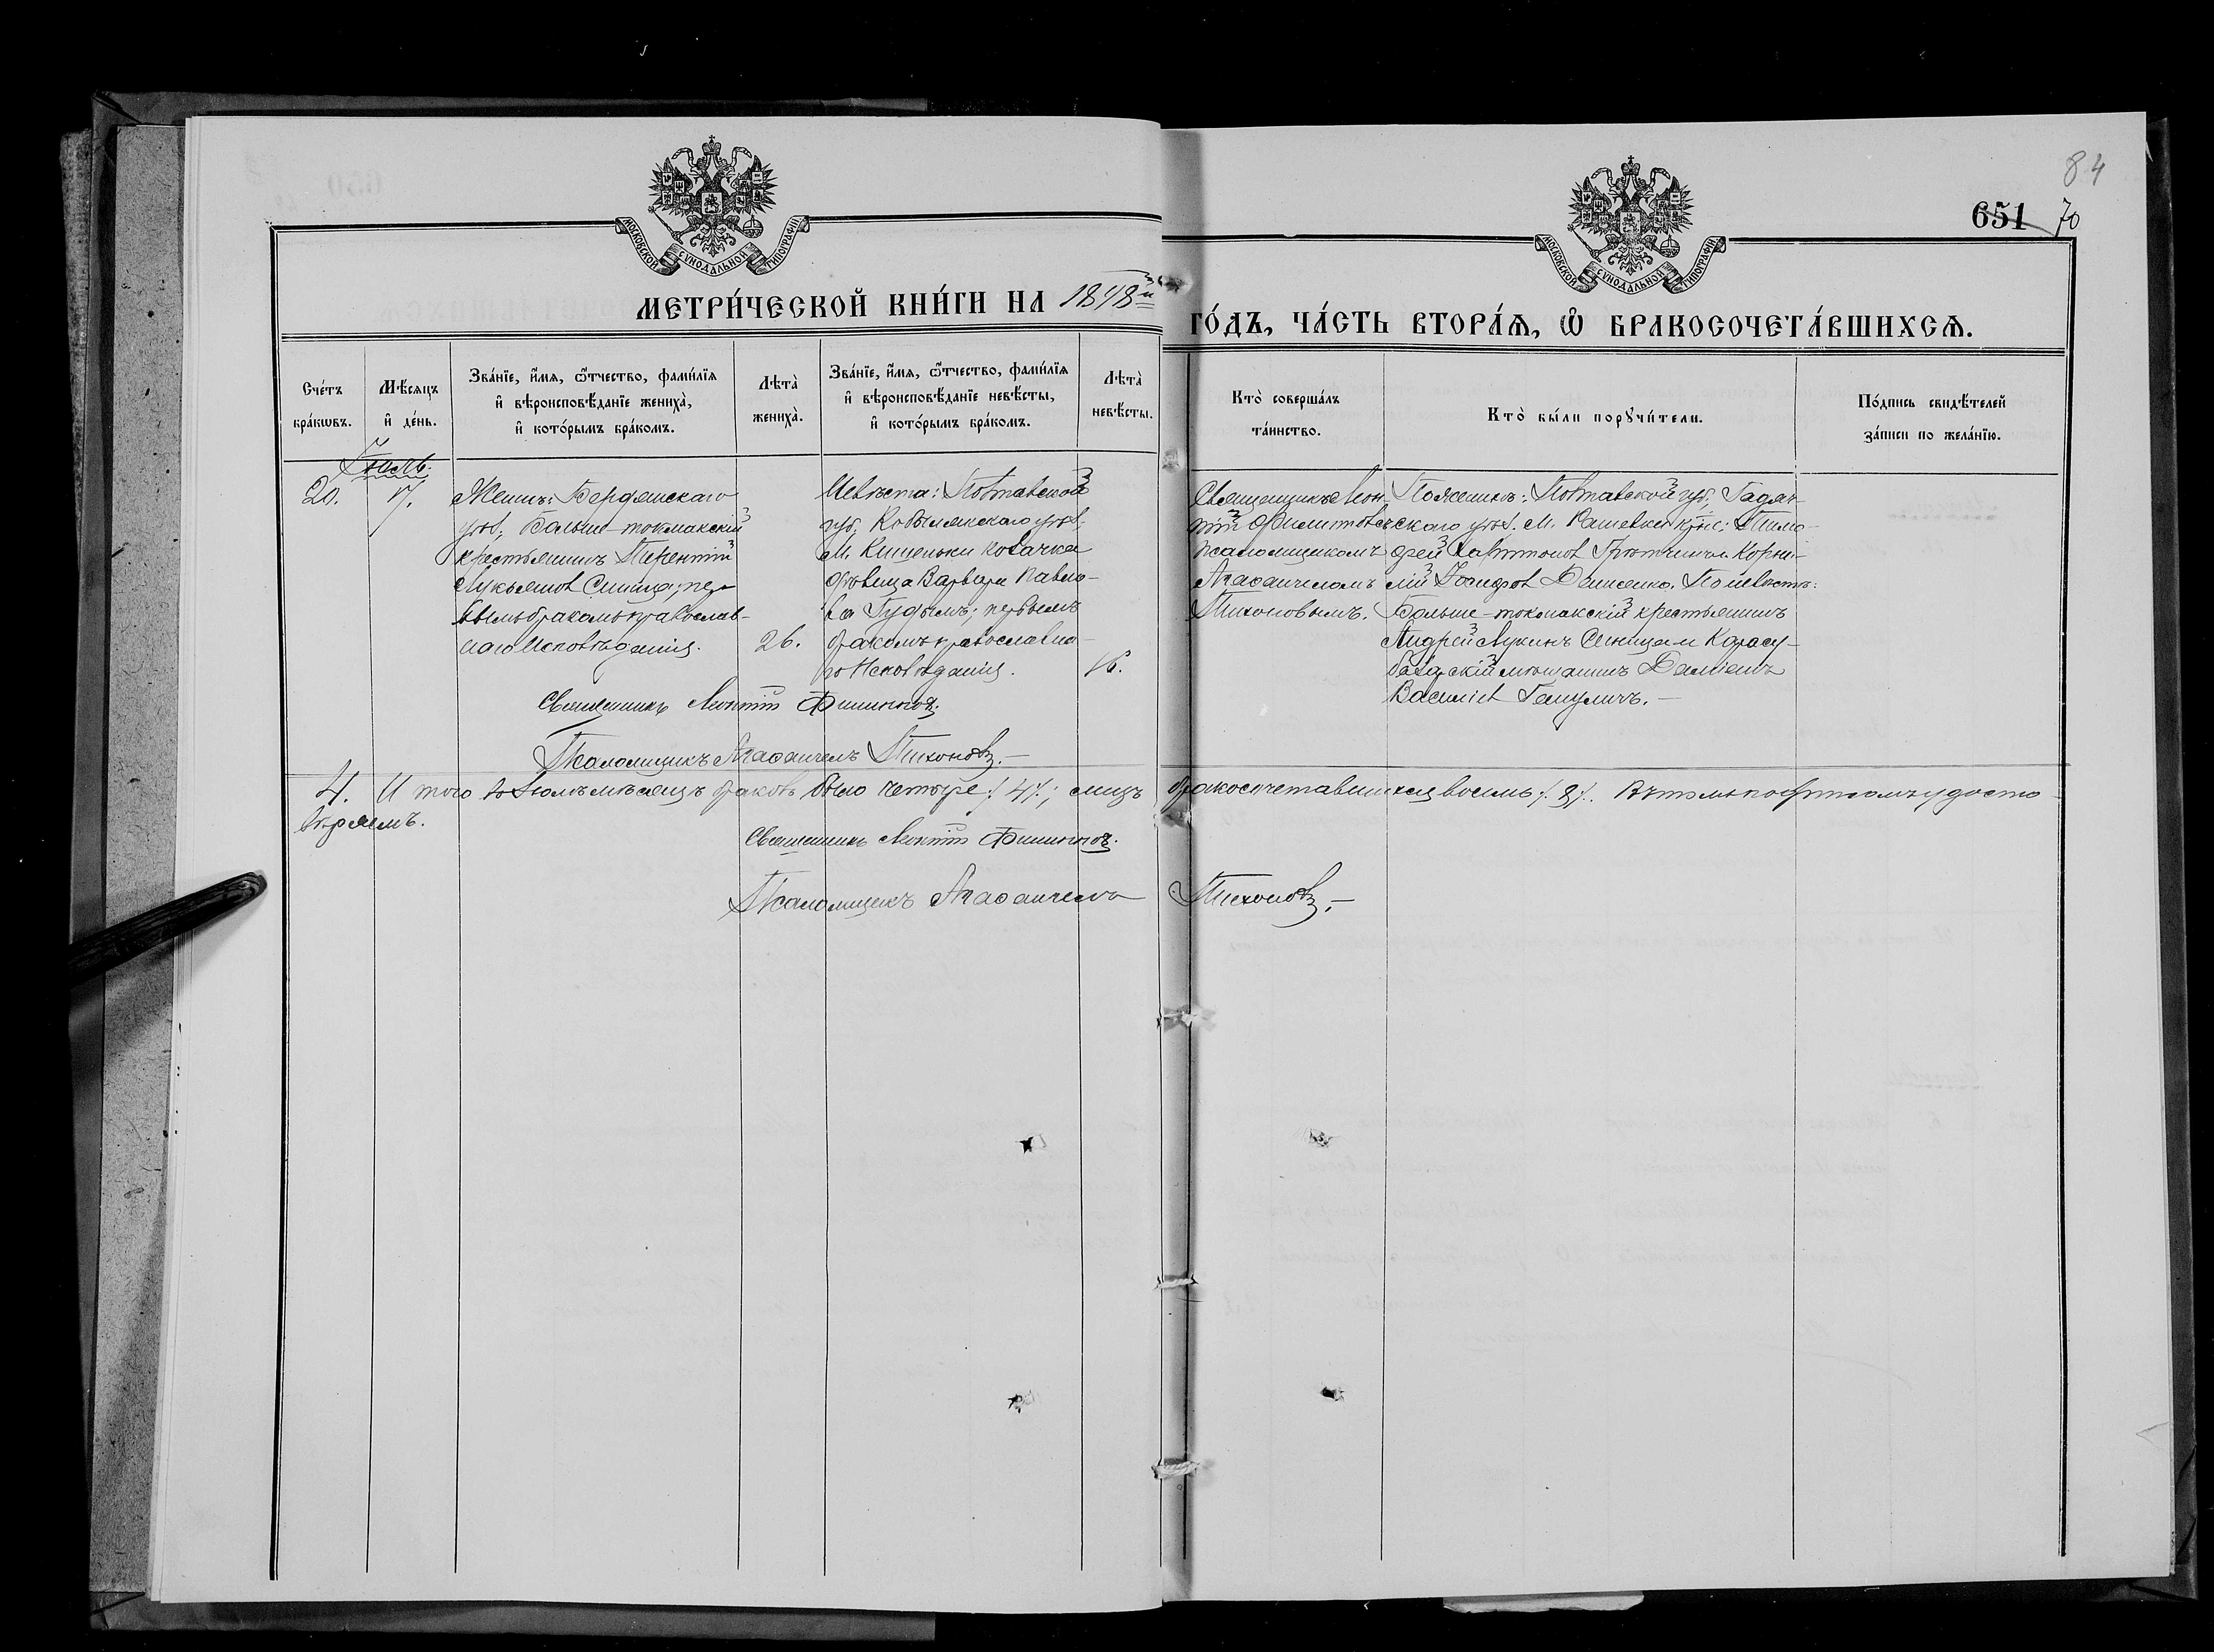 84
651 70
МОСКОВСКОЙ СѴНОДАЛЬНОЙ ТИПОГРАФІИ
МОСКОВСКОЙ СѴНОДАЛЬНОЙ ТИПОГРАФІИ
МЕТРИ́ЧЕСКОЙ КНИ́ГИ НА 18 8й
ГО́ДЪ, ЧА́СТЬ ВТОРА́Ѧ, Ѽ БРАКОСОЧЕТА́ВШИХСѦ.
Сче́тъ бра́кѡвъ.
Мѣ́сяцъ и҆ де́нь.
Зва́нїе, и҆́мя, ѻ҆́тчество, фами́лїя и҆ вѣроисповѣ́данїе жениха̀, и҆ кото́рымъ бра́комъ.
Лѣта̀ жениха̀.
Зва́нїе, и҆́мя, ѻ҆́тчество, фами́лїя и҆ вѣроисповѣ́данїе невѣ́сты, и҆ кото́рымъ бра́комъ.
Лѣта̀ невѣ́сты.
Кто̀ соверша́лъ та́инство.
Кто̀ бы́ли порꙋчи́тели.
По́дпись свидѣ́телей за́писи по жела́нїю.
Іюль.
20.
17.
Женихъ: Бердянскаго
уѣз., Больше-токмакскій
крестьянинъ Терентій
Лукьяновъ Синица; пер-
вымъ бракомъ православ-
наго исповѣданія.
26.
Невѣста: Полтавской
губ. Кобылякскаго уѣз.
м. Кишеньки козачка
дѣвица Варвара Павло-
ва ; первымъ
бракомъ православна-
го исповѣданія.
16.
Священникъ Леон-
тій Филипповъ съ
псаломщикомъ
Агаѳангеломъ
Тихоновымъ.
По женихѣ: Полтавской губ. Гадяч-
скаго уѣз. м. Рашевки Тимо-
ѳей Харитоновъ и Корни-
лій Іосифовъ Денисенко. По невѣстѣ:
Больше-токмакскій крестьянинъ
Андрей Лукинъ Синица и Карасу-
базарскій мѣщанинъ
Василіевъ
Священникъ Леонтій Филипповъ.
Псаломщикъ Агаѳангелъ Тихоновъ.
4. И того въ Іюлѣ мѣсяцѣ браковъ было четыре /4/; лицъ бракосочетавшихся восемь /8/. Въ томъ по удосто-
вѣряемъ.
Священникъ Леонтій Филипповъ.
Псаломщикъ Агаѳангелъ Тихоновъ.